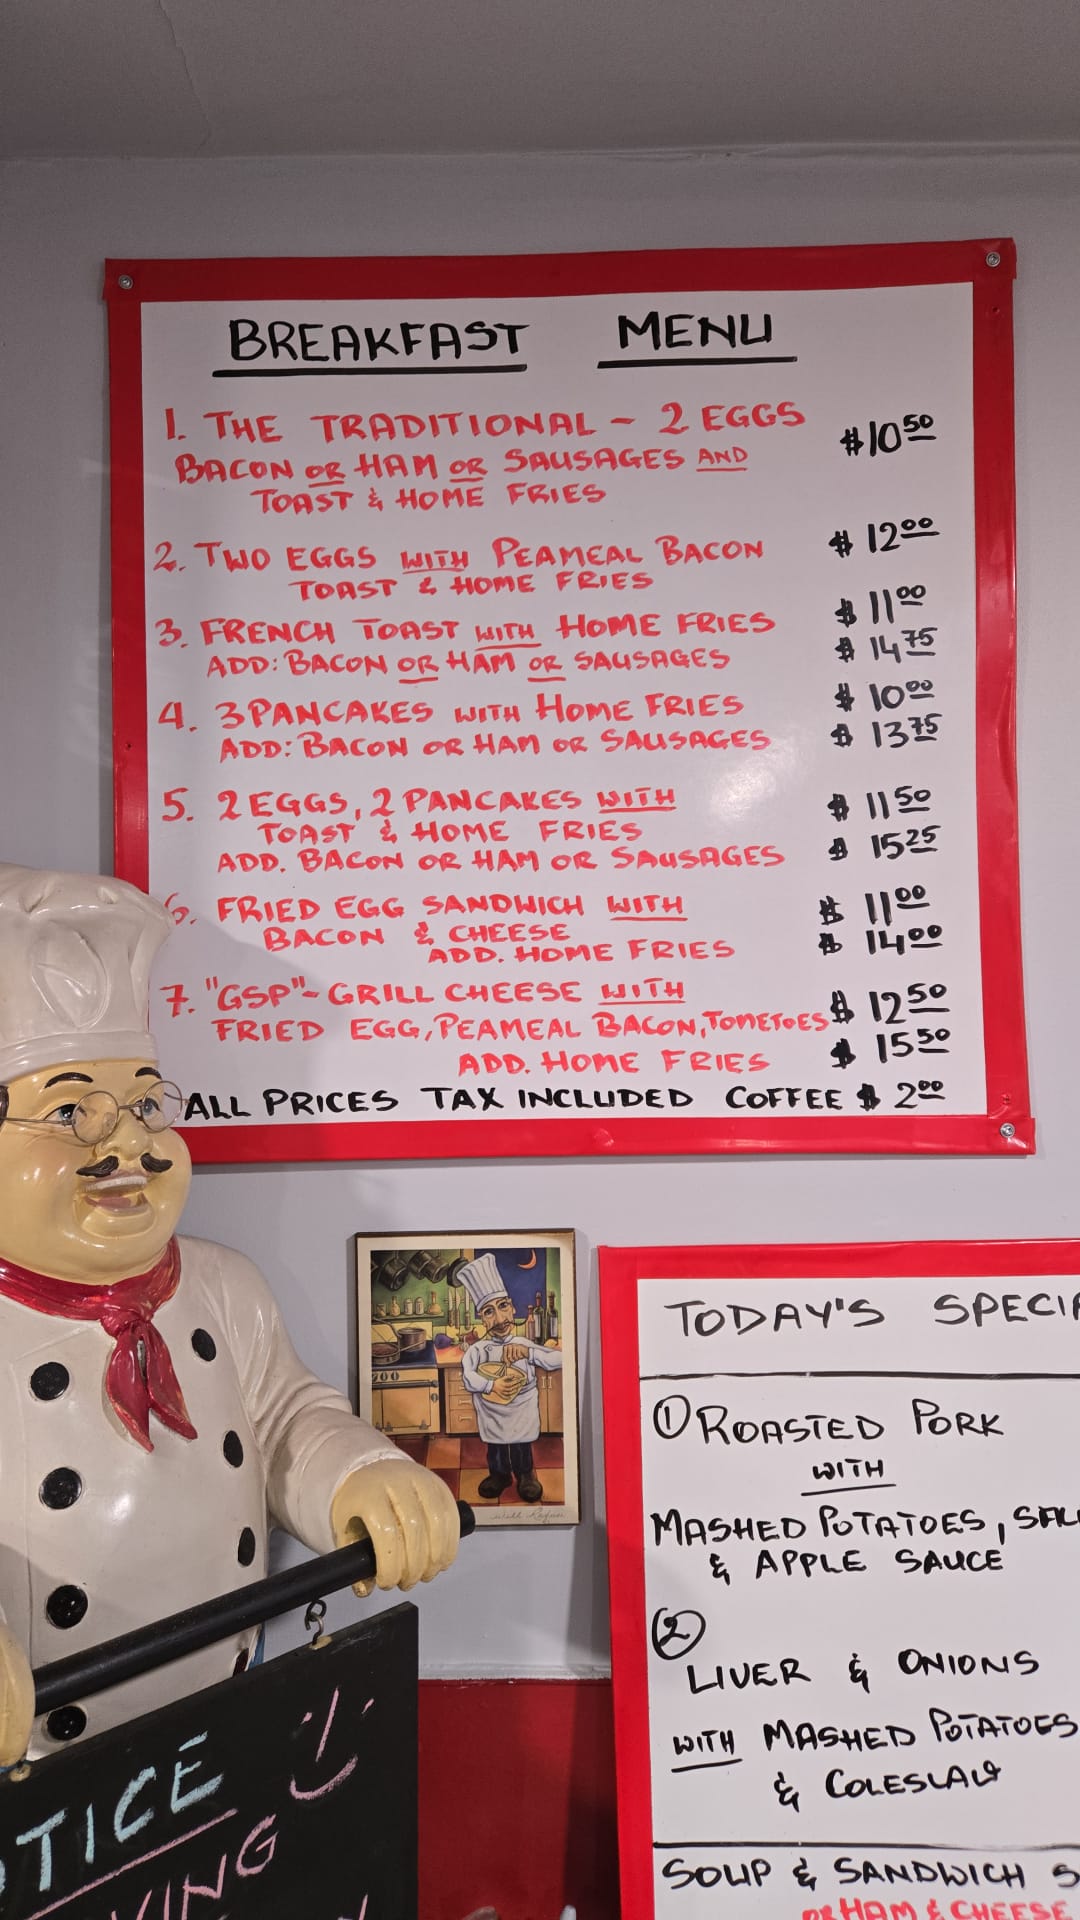 BREAKFAST MENU
1. THE TRADITIONAL - 2 EGGS $10.50
BACON OR HAM OR SAUSAGES AND
TOAST & HOME FRIES
2. TWO EGGS WITH PEAMEAL BACON $12.00
TOAST & HOME FRIES
3. FRENCH TOAST WITH HOME FRIES $11.00
ADD: BACON OR HAM OR SAUSAGES $14.75
4. 3 PANCAKES WITH HOME FRIES $10.00
ADD: BACON OR HAM OR SAUSAGES $13.75
5. 2 EGGS, 2 PANCAKES WITH $11.50
TOAST & HOME FRIES
ADD. BACON OR HAM OR SAUSAGES $15.25
6. FRIED EGG SANDWICH WITH $11.00
BACON & CHEESE
ADD. HOME FRIES $14.00
7. "GSP"- GRILL CHEESE WITH $12.50
FRIED EGG, PEAMEAL BACON, TOMETOES
ADD. HOME FRIES $15.50
ALL PRICES TAX INCLUDED COFFEE $2.00
TODAY'S SPECIA
① ROASTED PORK
WITH
MASHED POTATOES,
& APPLE SAUCE
②
LIVER & ONIONS
WITH MASHED POTATOES
& COLESLAW
SOUP & SANDWICH S
OR HAM & CHEESE
OTICE
KING